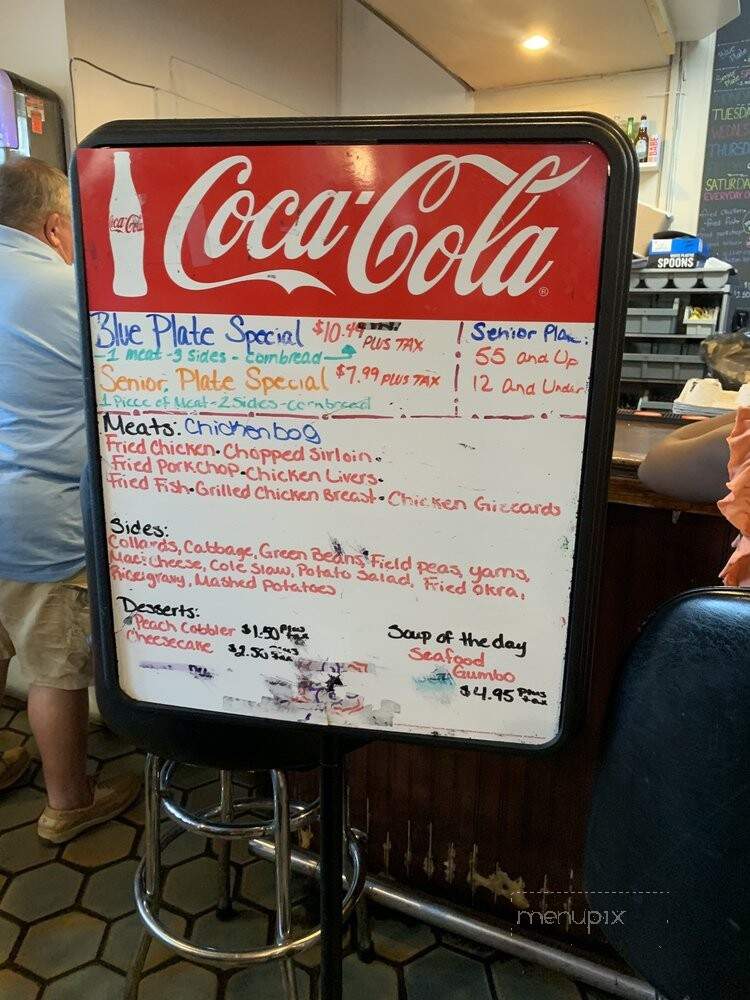 Coca-Cola
Coca-Cola
®
Blue Plate Special $10.49 PLUS TAX
-1 meat-3 sides-cornbread
Senior Plate Special $7.99 PLUS TAX
1 Piece of Meat-2 Sides-cornbread
Senior Plate:
55 and Up
12 and Under
Meats: Chickenbog
Fried Chicken • Chopped Sirloin •
Fried Porkchop • Chicken Livers •
Fried Fish • Grilled Chicken Breast • Chicken Gizzards
Sides:
Collards, Cabbage, Green Beans, Field peas, yams,
Mac:cheese, Cole Slaw, Potato Salad, Fried Okra,
Rice:gravy, Mashed Potatoes
Desserts:
Peach Cobbler $1.50 Plus tax
Cheesecake $2.50 Plus tax
Soup of the day
Seafood
Gumbo
$4.95 Plus tax
TUESDA
WEDNES
THURSD
SATURDA
EVERYDAY
SPOONS
menupix